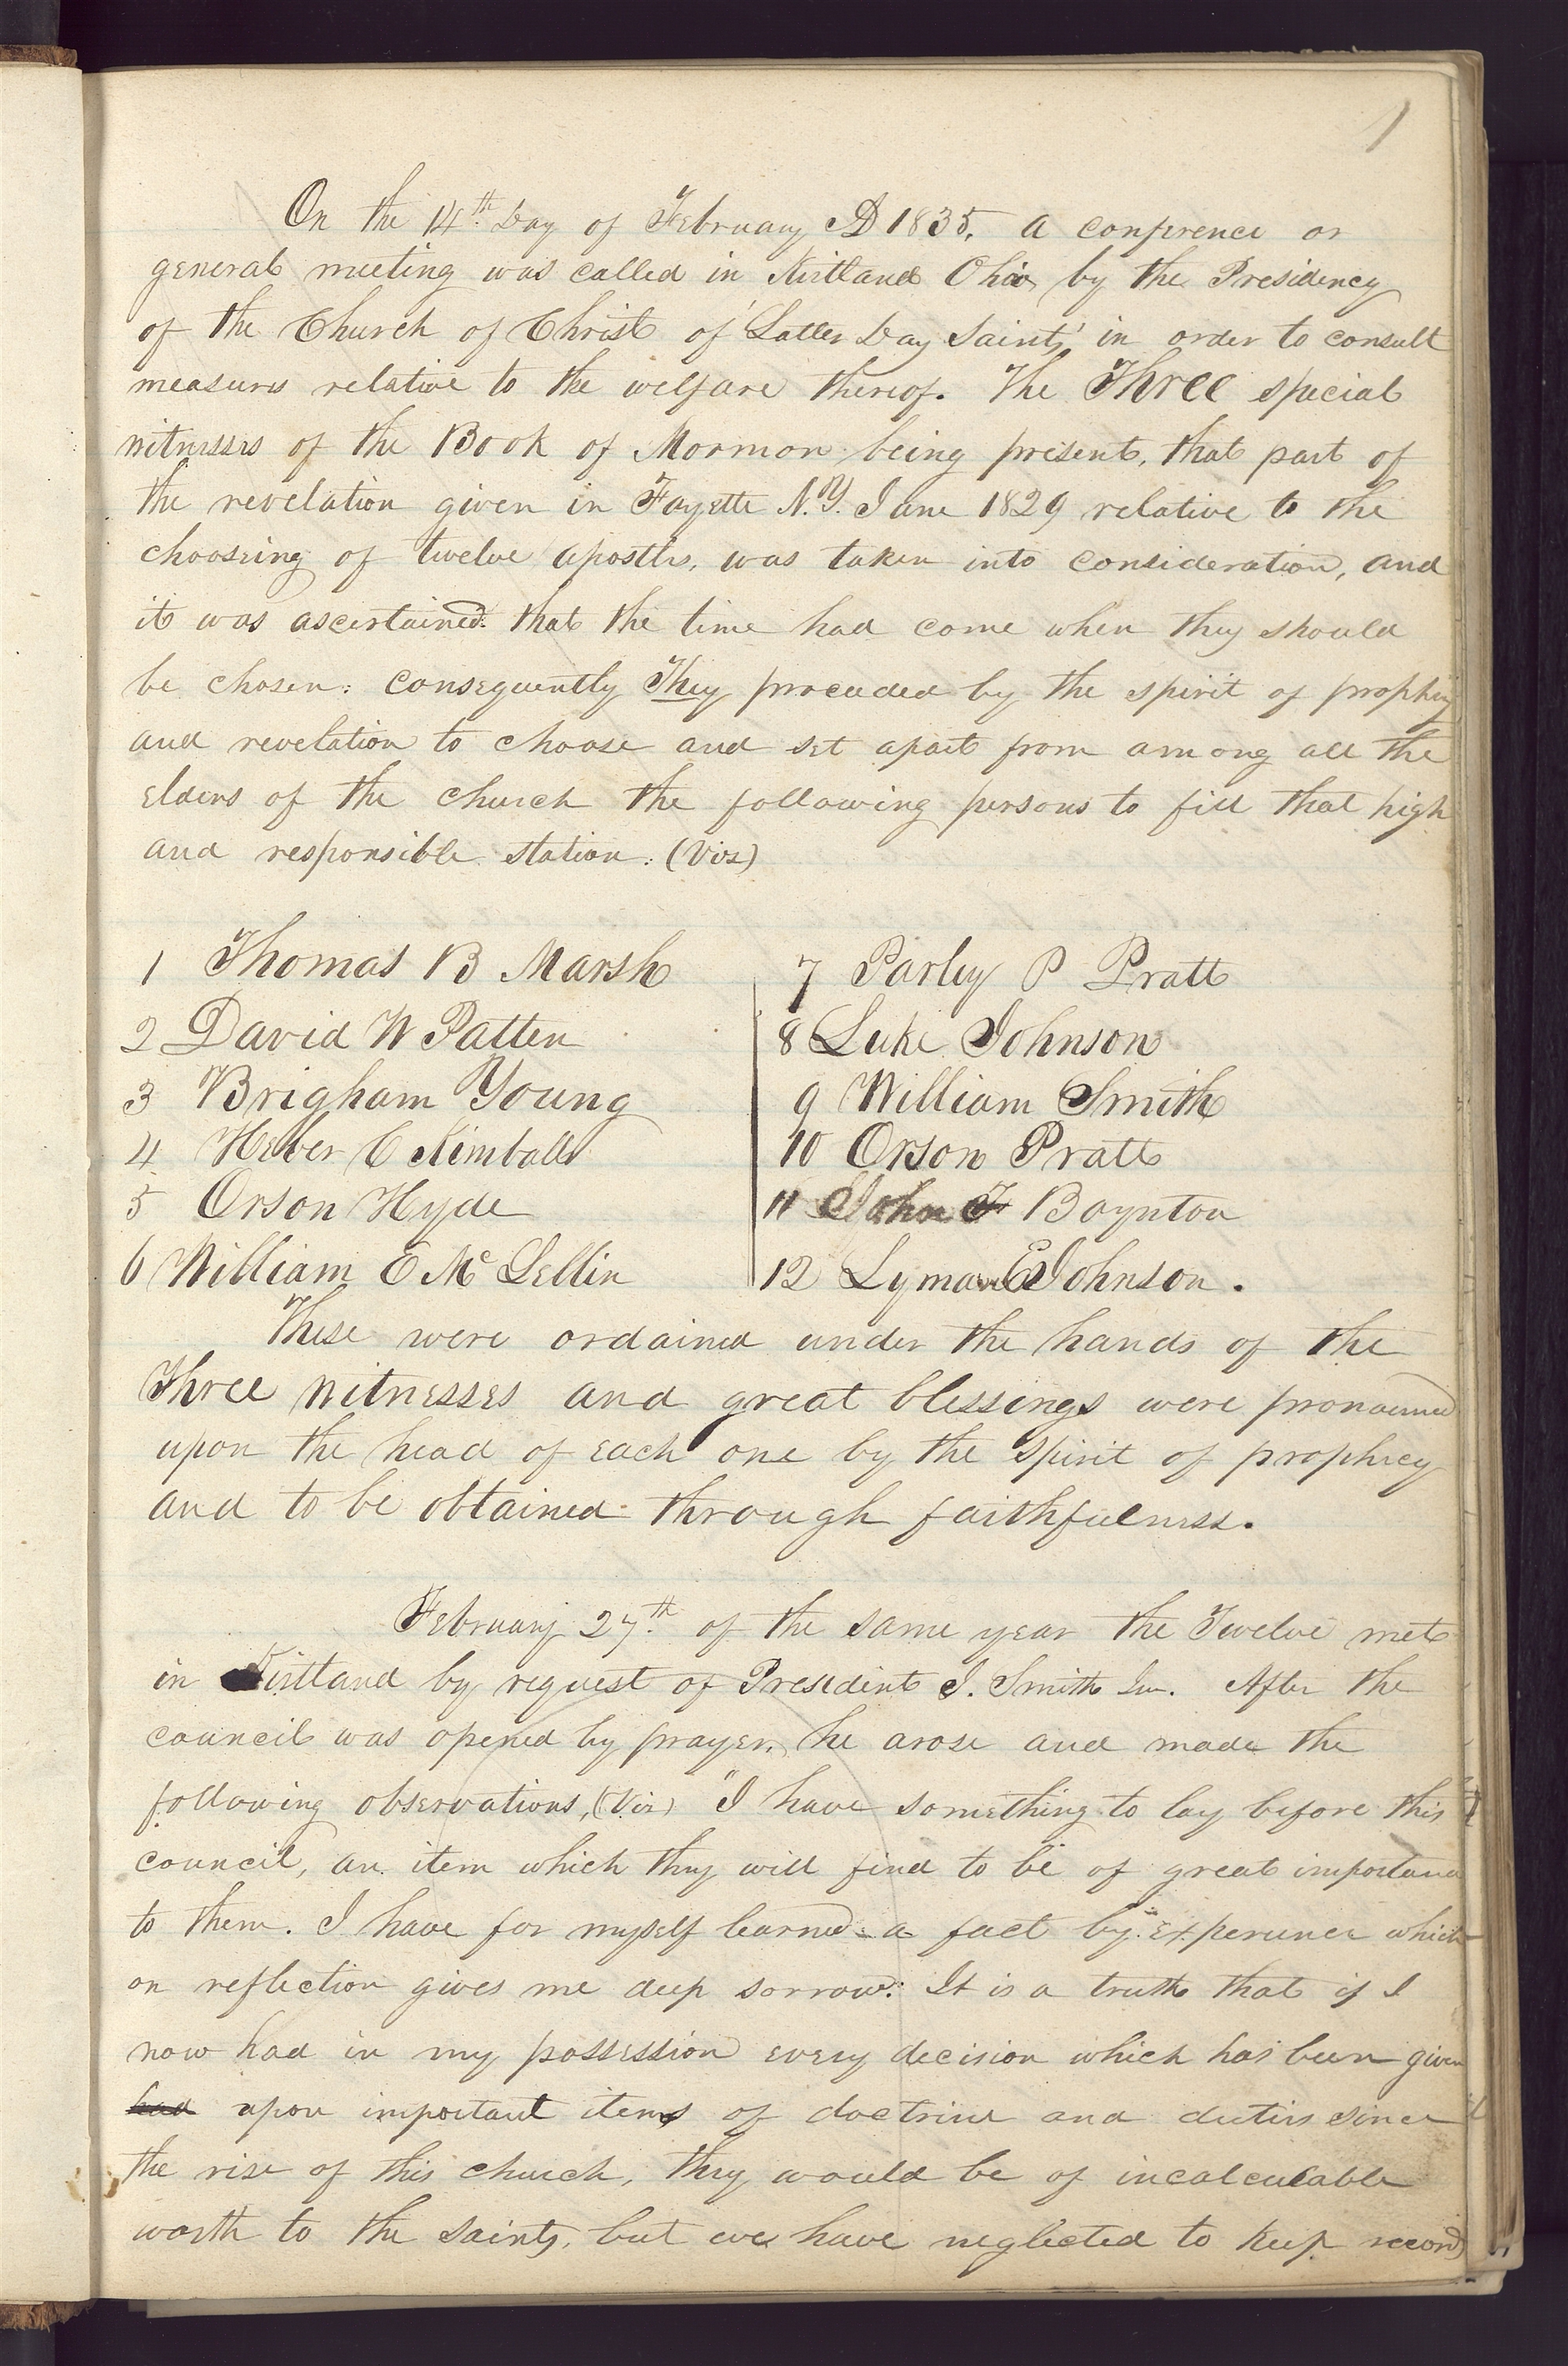 1
On the 14th. Day of February AD 1835. a conference or
general meeting was called in Kirtland Ohio, by the Presidency
of the Church of Christ of 'Latter Day Saints,' in order to consult
measures relative to the welfare thereof. The Three special
witnesses of the Book of Mormon being present, that part of
the revelation given in Fayette N.Y. June 1829 relative to the
choosing of twelve apostles, was taken into consideration, and
it was ascertained that the time had come when they should
be chosen: consequently They proceeded by the spirit of prophecy
and revelation to choose and set apart from among all the
Elders of the church the following persons to fill that high
and responsible station: (Viz)
1 Thomas B Marsh
2 David W Patten
3 Brigham Young
4 Heber C Kimball
5 Orson Hyde
6 William E McLellin
7 Parley P Pratt
8 Luke Johnson
9 William Smith
10 Orson Pratt
11 John F Boynton
12 Lyman E Johnson.
These were ordained under the hands of the
Three witnesses and great blessings were pronounced
upon the head of each one by the Spirit of prophecy
and to be obtained through faithfulness.
February 27th. of the same year the Twelve met
in Kirtland by request of President J. Smith Jun. After the
council was opened by prayer, he arose and made the
following observations, (Viz) "I have something to lay before this
council, an item which they will find to be of great importance
to them. I have for myself learned a fact by experience which
on reflection gives me deep sorrow: It is a truth that if I
now had in my possession every decision which has been given
had upon important items of doctrine and duties since
the rise of this church, they would be of incalculable
worth to the saints, but we have neglected to keep record